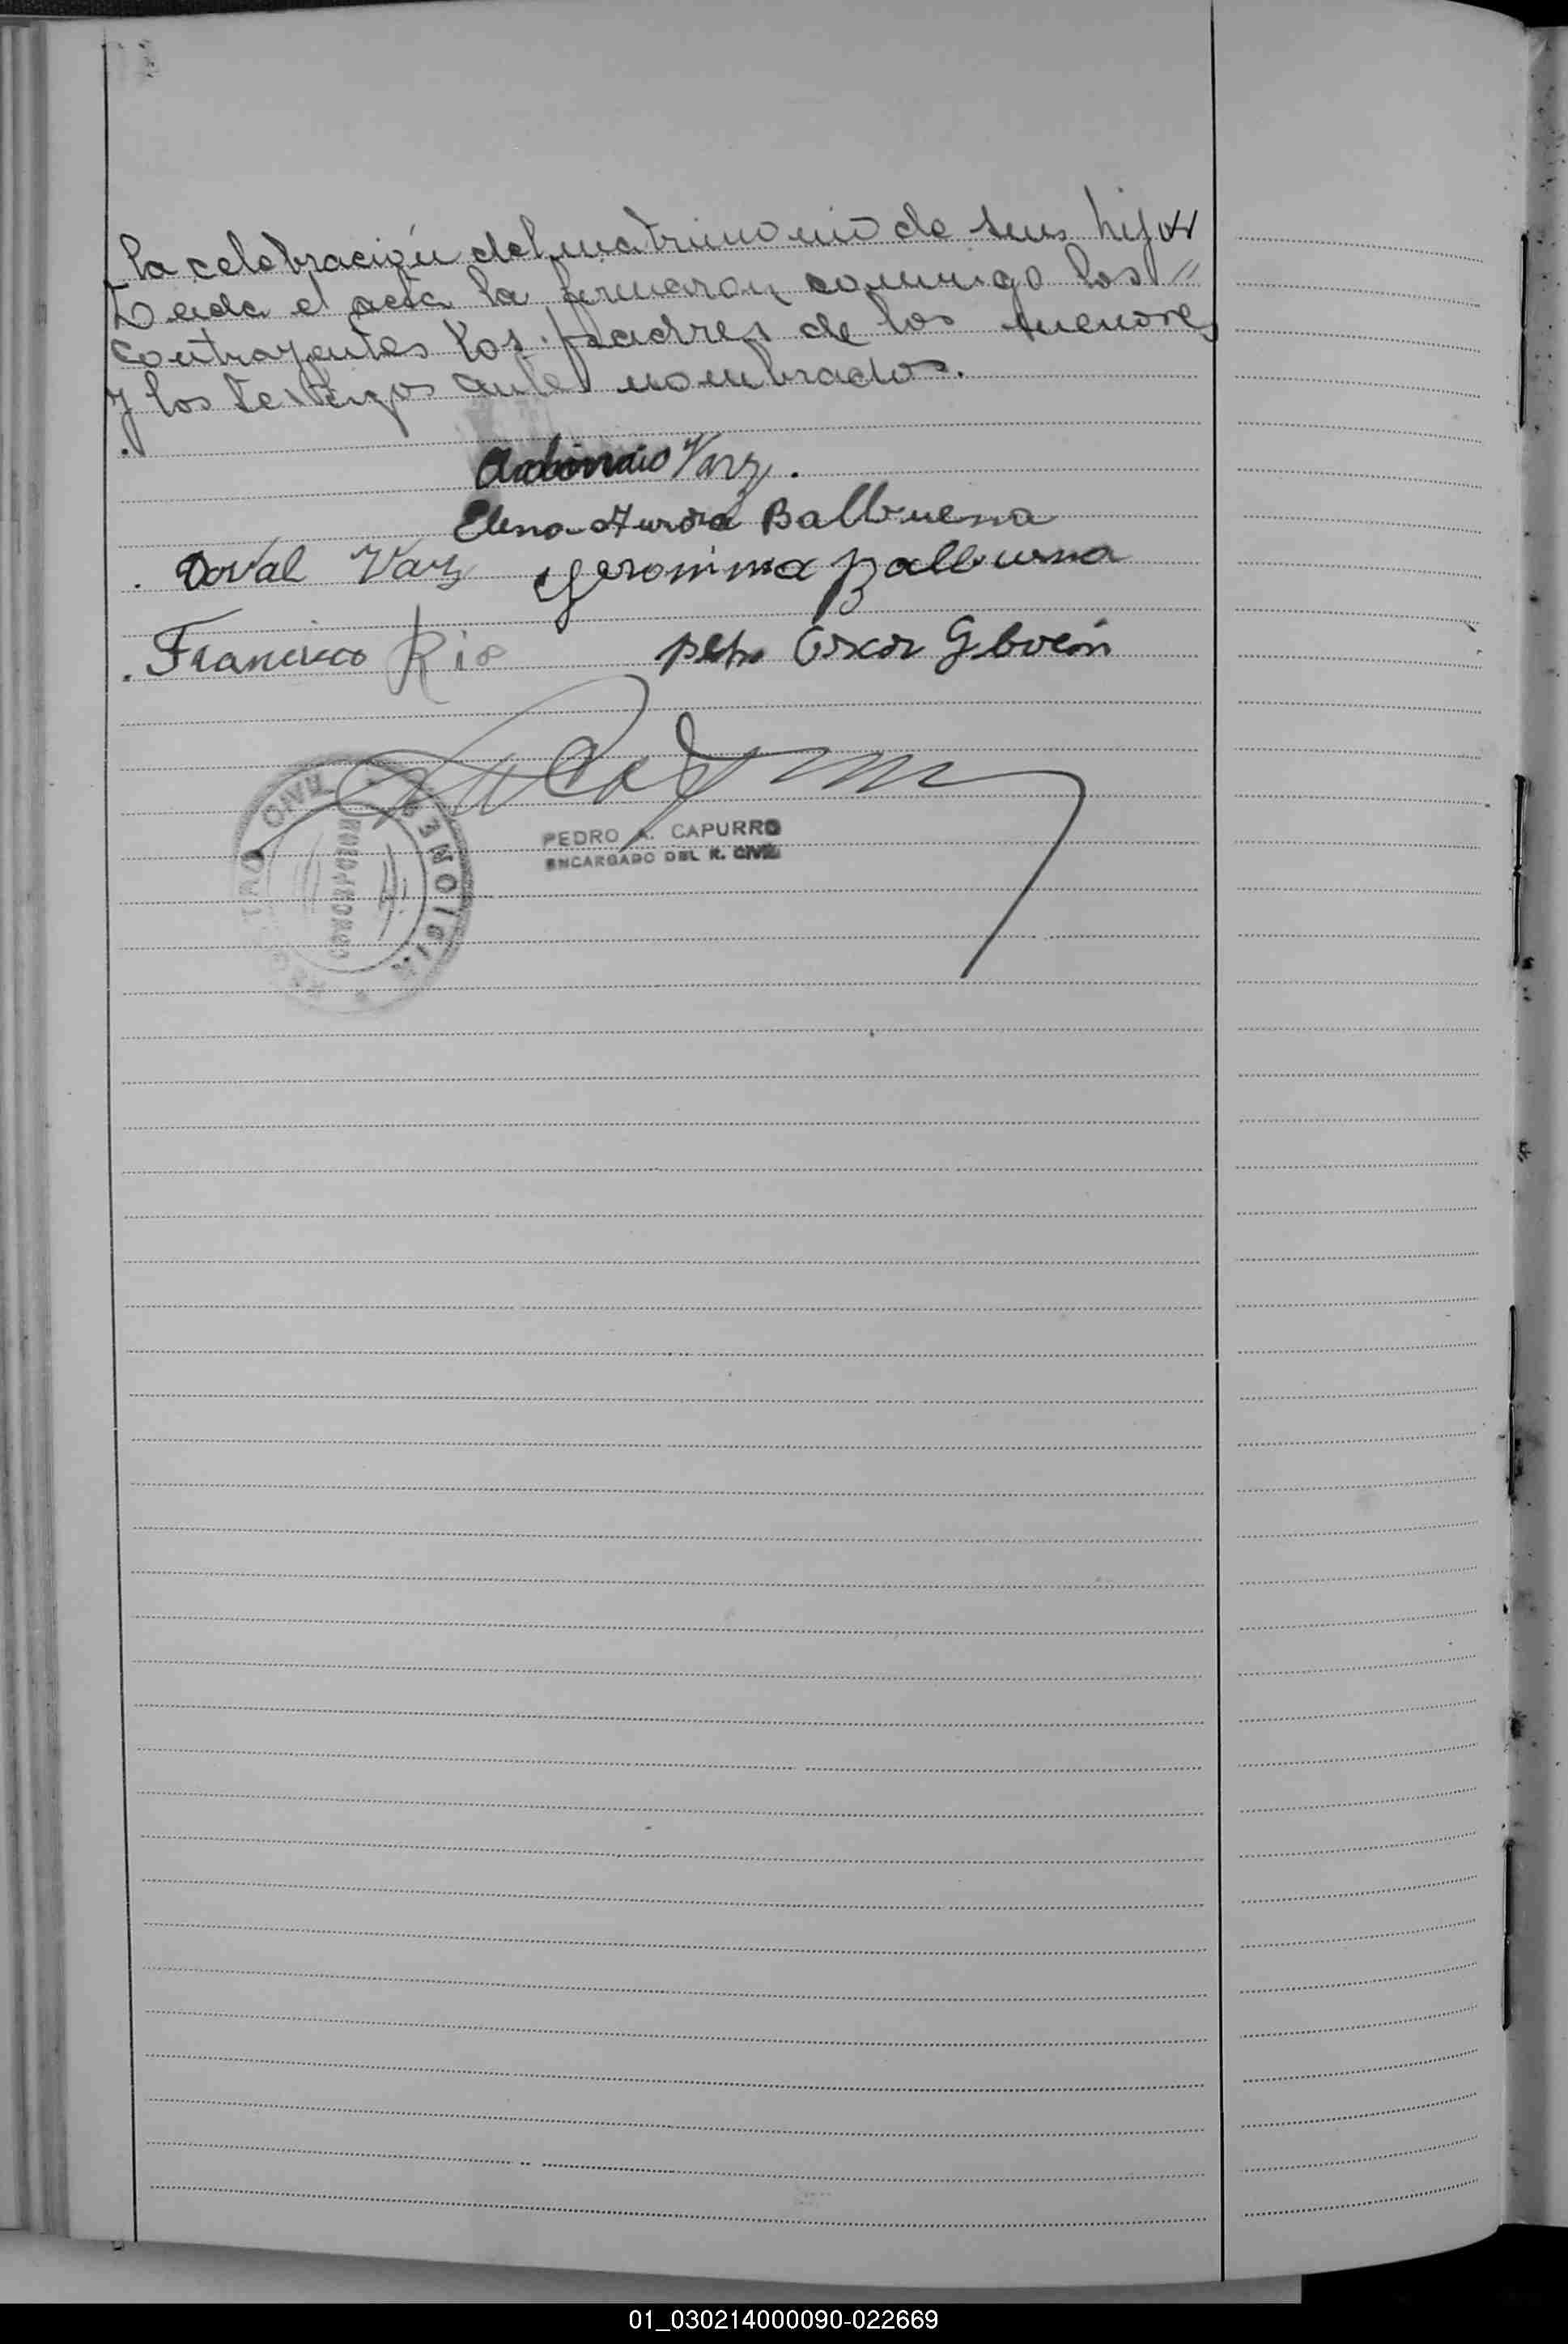 la celebración del matrimonio de sus hijos
Leida el acta la firmaron conmigo los //
contrayentes los padres de los menores
y los testigos ante nombrados.
Varz.
Elena Aurora Balbuena
Doval Varz Geronima Balbuena
Francisco Rio Pedro Oscar
PEDRO A. CAPURRO
ENCARGADO DEL R. CIVIL
REGISTRO CIVIL MISIONES
01_030214000090-022669